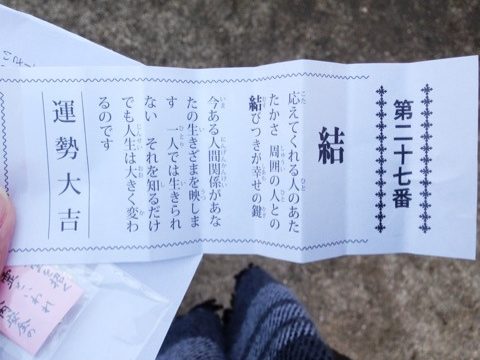 第二十七番
結
応えてくれる人のあた
たかさ 周囲の人との
結びつきが幸せの鍵
今ある人間関係があな
たの生きざまを映しま
す 一人では生きられ
ない それを知るだけ
でも人生は大きく変わ
るのです
運勢大吉